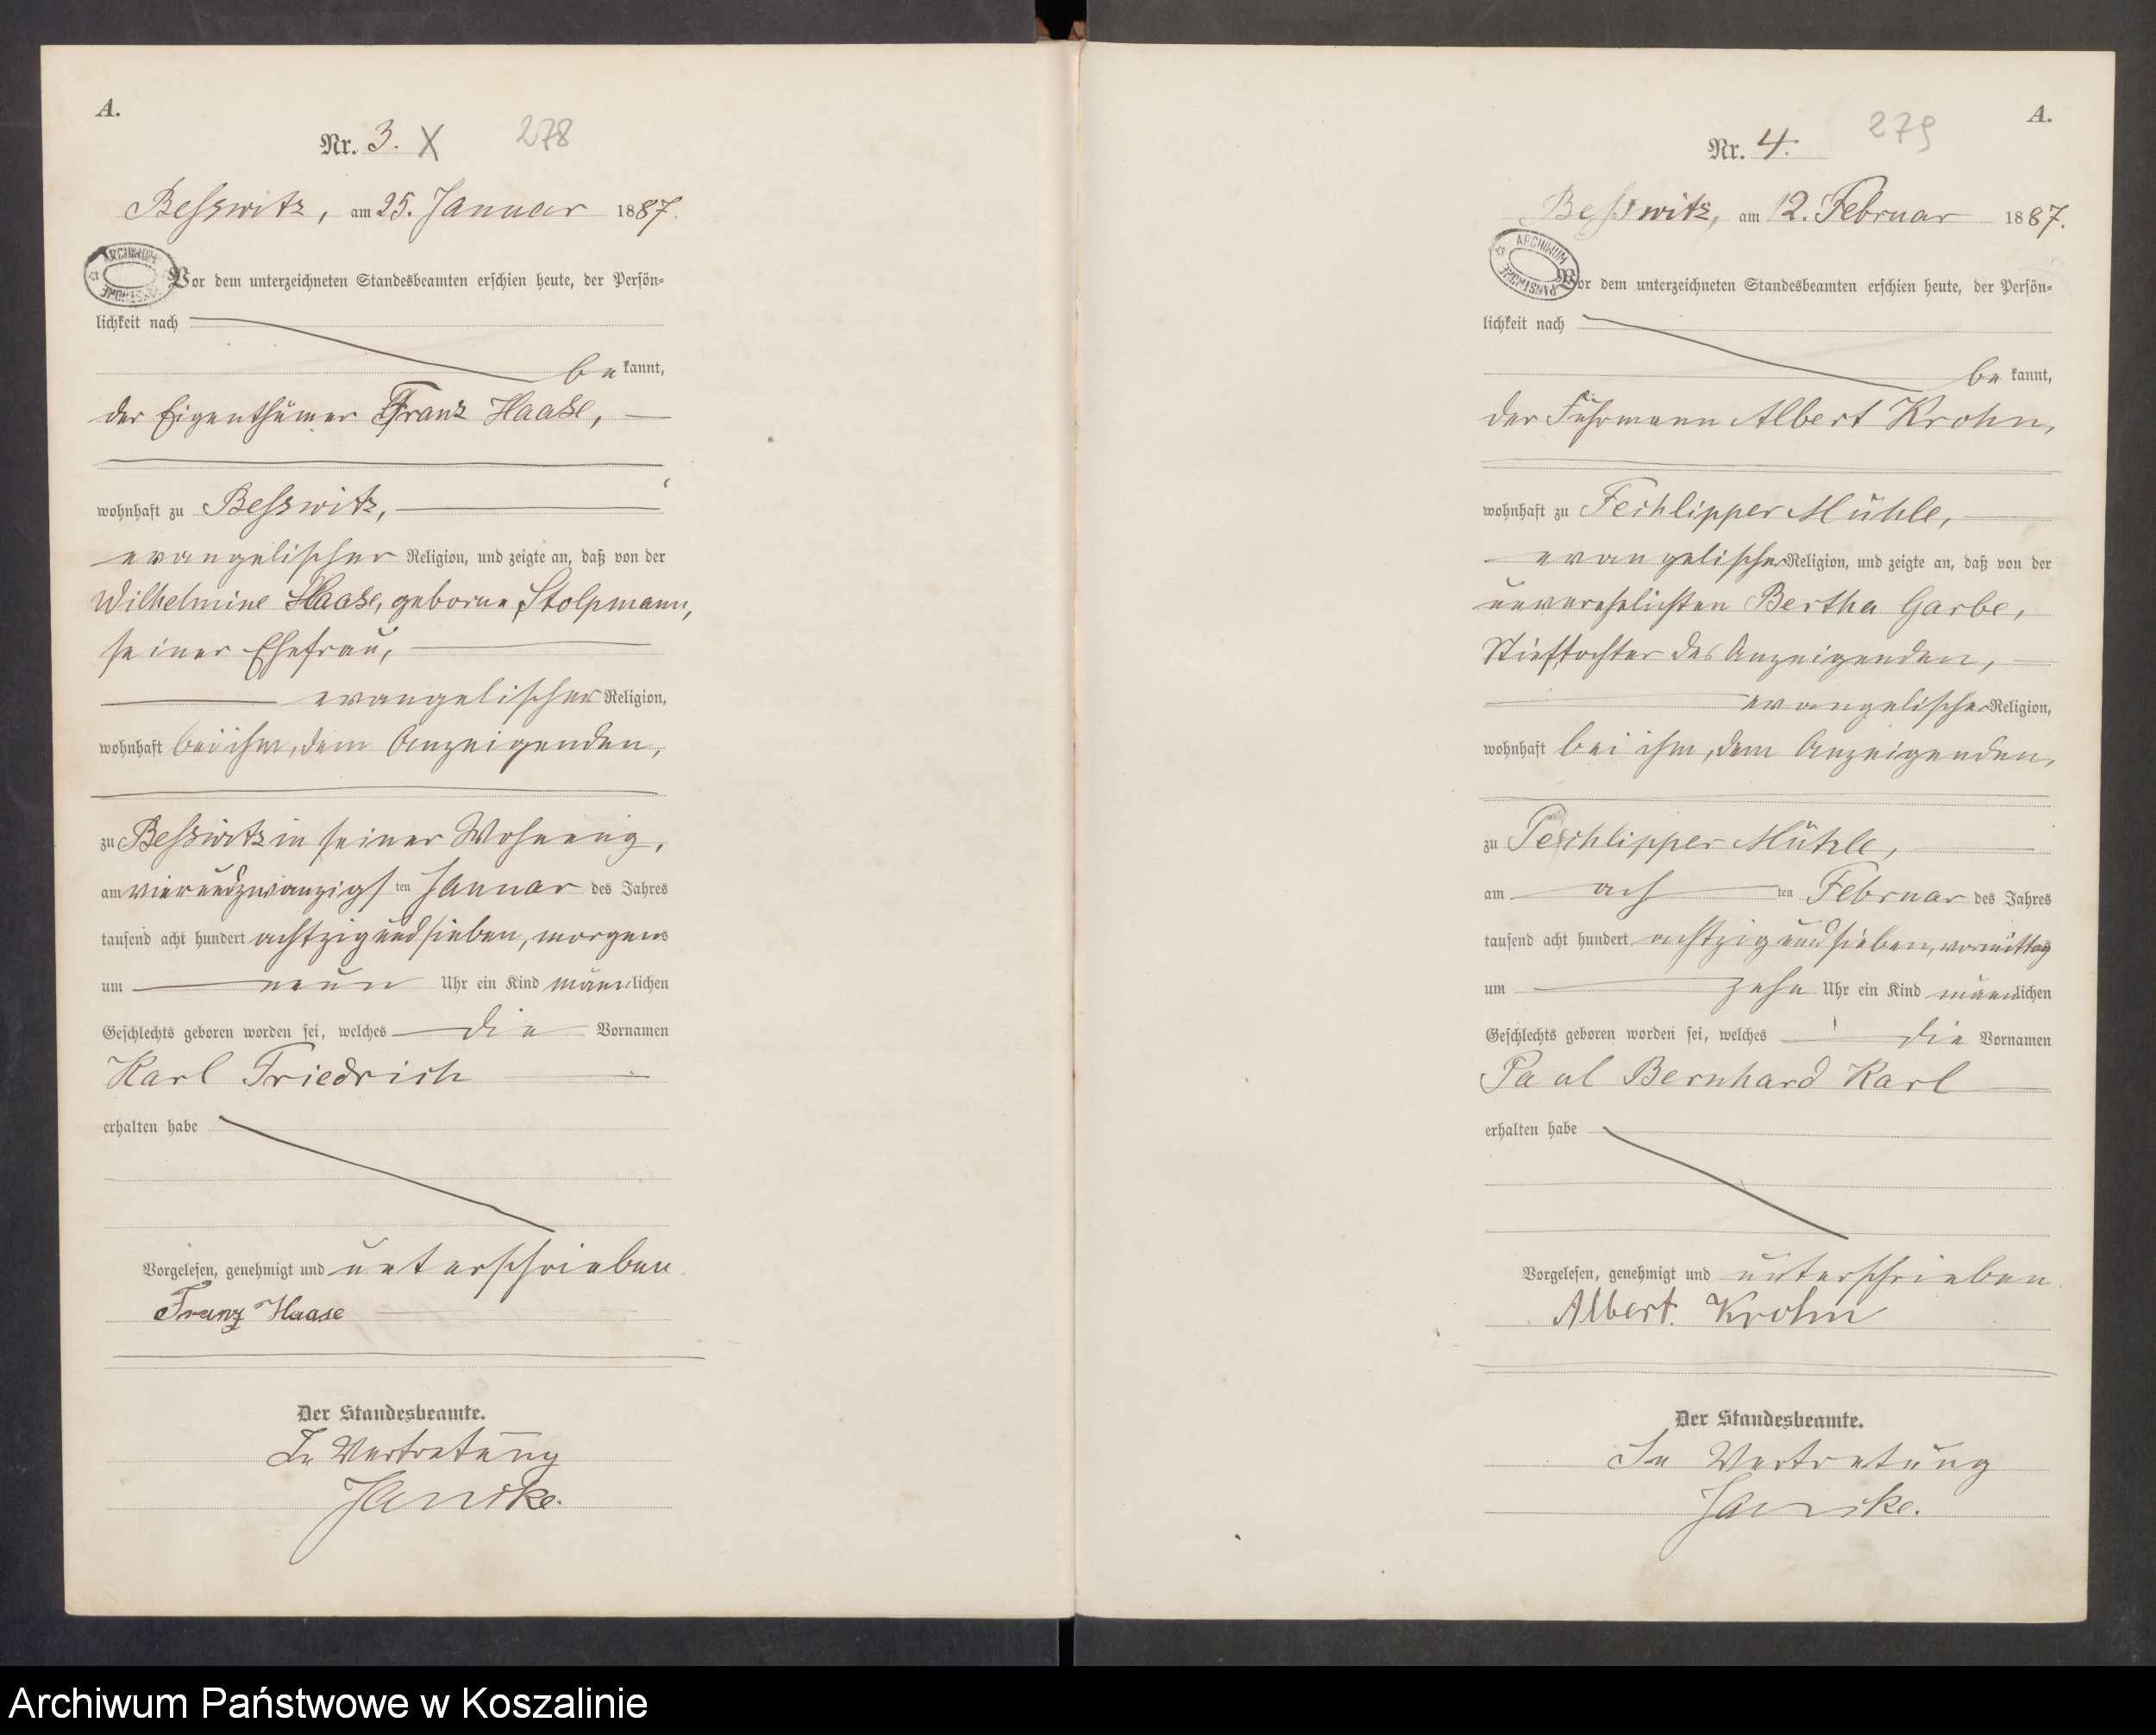 A.
Nr. 3. X 278
Beßwitz, am 25. Januar 1887.
ARCHIWUM PAŃSTWOWE
Vor dem unterzeichneten Standesbeamten erschien heute, der Persön-
lichkeit nach
be kannt,
der Eigenthümer Franz Haase,
wohnhaft zu Beßwitz,
evangelischer Religion, und zeigte an, daß von der
Wilhelmine Haase, geborne Stolpmann,
seiner Ehefrau,
evangelischer Religion,
wohnhaft bei ihm, dem Anzeigenden,
zu Beßwitz in seiner Wohnung,
am vierundzwanzigs ten Januar des Jahres
tausend acht hundert achtzig und sieben, morgens
um neun Uhr ein Kind männlichen
Geschlechts geboren worden sei, welches die Vornamen
Karl Friedrich
erhalten habe
Vorgelesen, genehmigt und unterschrieben
Franz Haase
Der Standesbeamte.
In Vertretung
Janike.
A.
Nr. 4. 279
Beßwitz, am 12. Februar 1887.
ARCHIWUM PAŃSTWOWE
Vor dem unterzeichneten Standesbeamten erschien heute, der Persön-
lichkeit nach
be kannt,
der Fuhrmann Albert Krohn,
wohnhaft zu Techlipper Mühle,
evangelischer Religion, und zeigte an, daß von der
unverehelichten Bertha Garbe,
Stieftochter des Anzeigenden,
evangelischer Religion,
wohnhaft bei ihm, dem Anzeigenden,
zu Techlipper Mühle,
am ach ten Februar des Jahres
tausend acht hundert achtzig und sieben, vormittag
um zehn Uhr ein Kind männlichen
Geschlechts geboren worden sei, welches die Vornamen
Paul Bernhard Karl
erhalten habe
Vorgelesen, genehmigt und unterschrieben.
Albert Krohn
Der Standesbeamte.
In Vertretung
Janike.
Archiwum Państwowe w Koszalinie